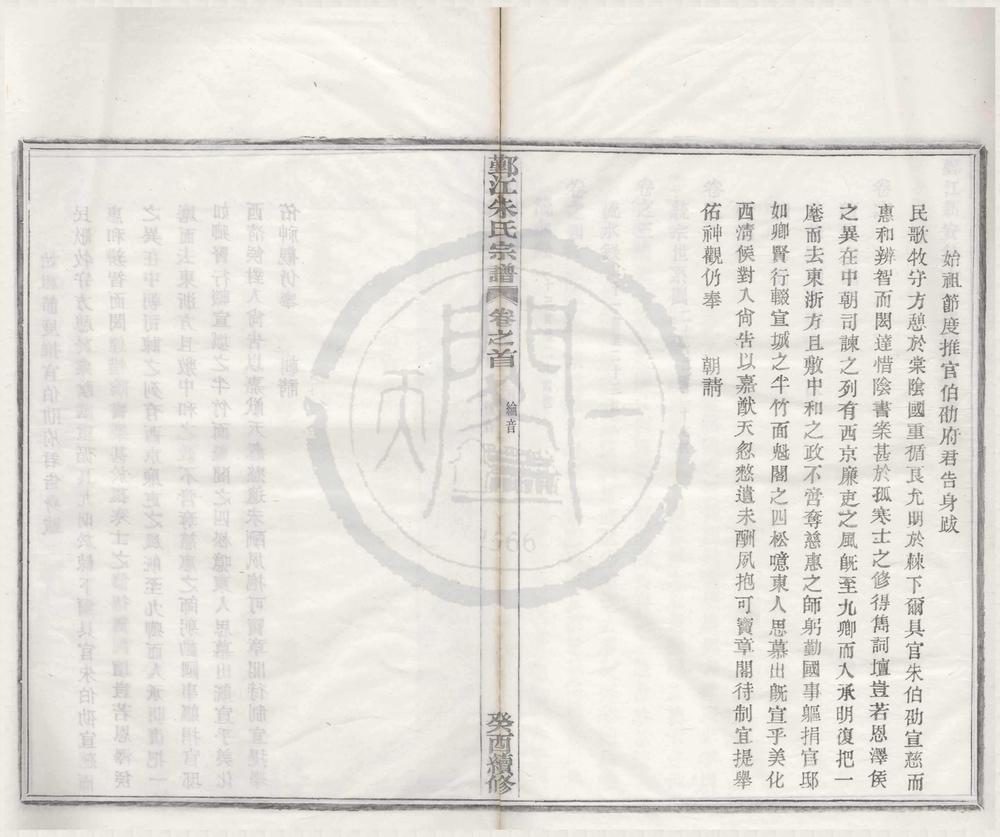 始祖節度推官伯劭府君告身跋
民歌牧守方憩於棠陰國重循良尤明於棘下爾具官朱伯劭宣慈而
惠和辨智而閎達惜陰書案甚於孤寒士之修得雋詞壇豈若恩澤侯
之異在中朝司諫之列有西京廉吏之風既至九卿而入承明復把一
麾而去東浙方且敷中和之政不啻奪慈惠之師躬勤國事軀捐官邸
如卿賢行輟宣城之半竹面魁閣之四松噫東人思慕出既宣乎美化
西清候對入尚告以嘉猷天忽憖遺未酬夙抱可寶章閣待制宜提舉
佑神觀仍奉 朝請
鄞江朱氏宗譜 卷之首 綸音 癸酉續修